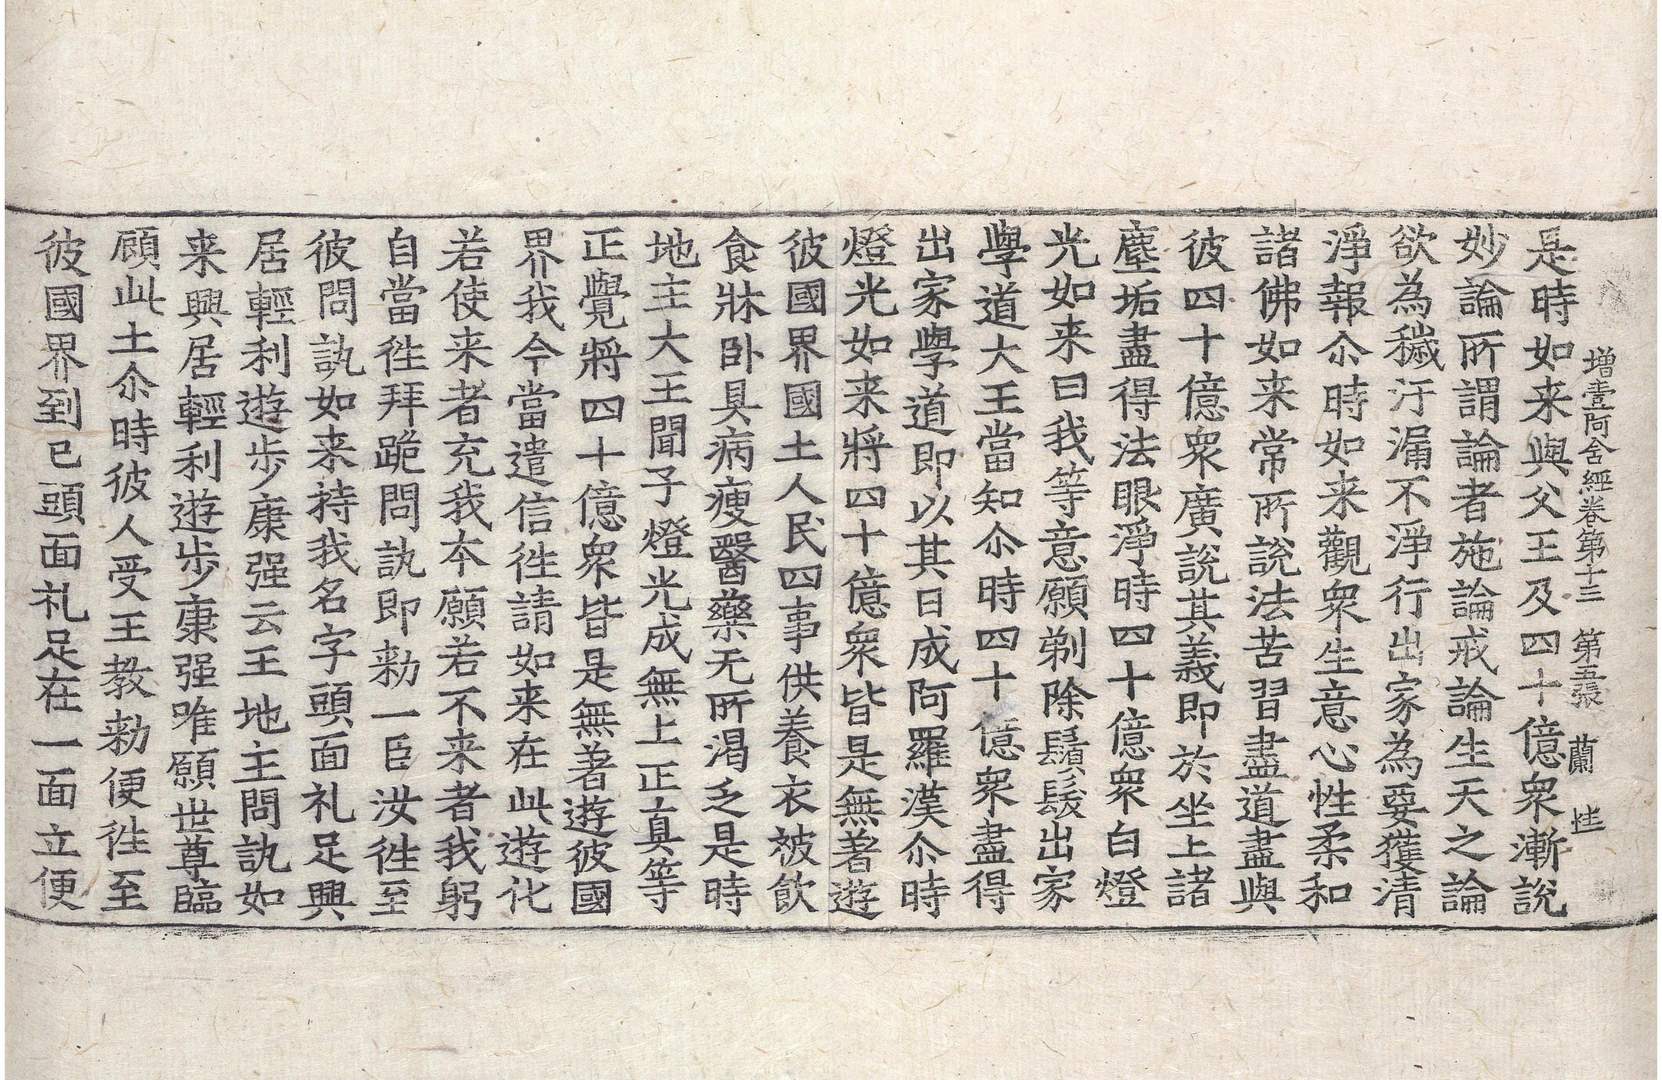 增壹阿含經卷第十三 第五張 蘭
是時如来與父王及四十億衆漸說
妙論所謂論者施論戒論生天之論
欲為穢汙漏不淨行出家為要獲清
淨報尒時如来觀衆生意心性柔和
諸佛如来常所說法苦習盡道盡與
彼四十億衆廣說其義即於坐上諸
塵垢盡得法眼淨時四十億衆白燈
光如来曰我等意願剃除鬚髮出家
學道大王當知尒時四十億衆盡得
出家學道即以其日成阿羅漢尒時
燈光如来將四十億衆皆是無著遊
彼國界國土人民四事供養衣被飲
食牀卧具病瘦醫藥无所渴乏是時
地主大王聞子燈光成無上正真等
正覺將四十億衆皆是無著遊彼國
界我今當遣信徃請如来在此遊化
若使来者充我本願若不来者我躬
自當徃拜跪問訊即勑一臣汝徃至
彼問訊如来持我名字頭面礼足興
居輕利遊步康强云王地主問訊如
来興居輕利遊步康强唯願世尊臨
顧此土尒時彼人受王教勑便徃至
彼國界到已頭面礼足在一面立便